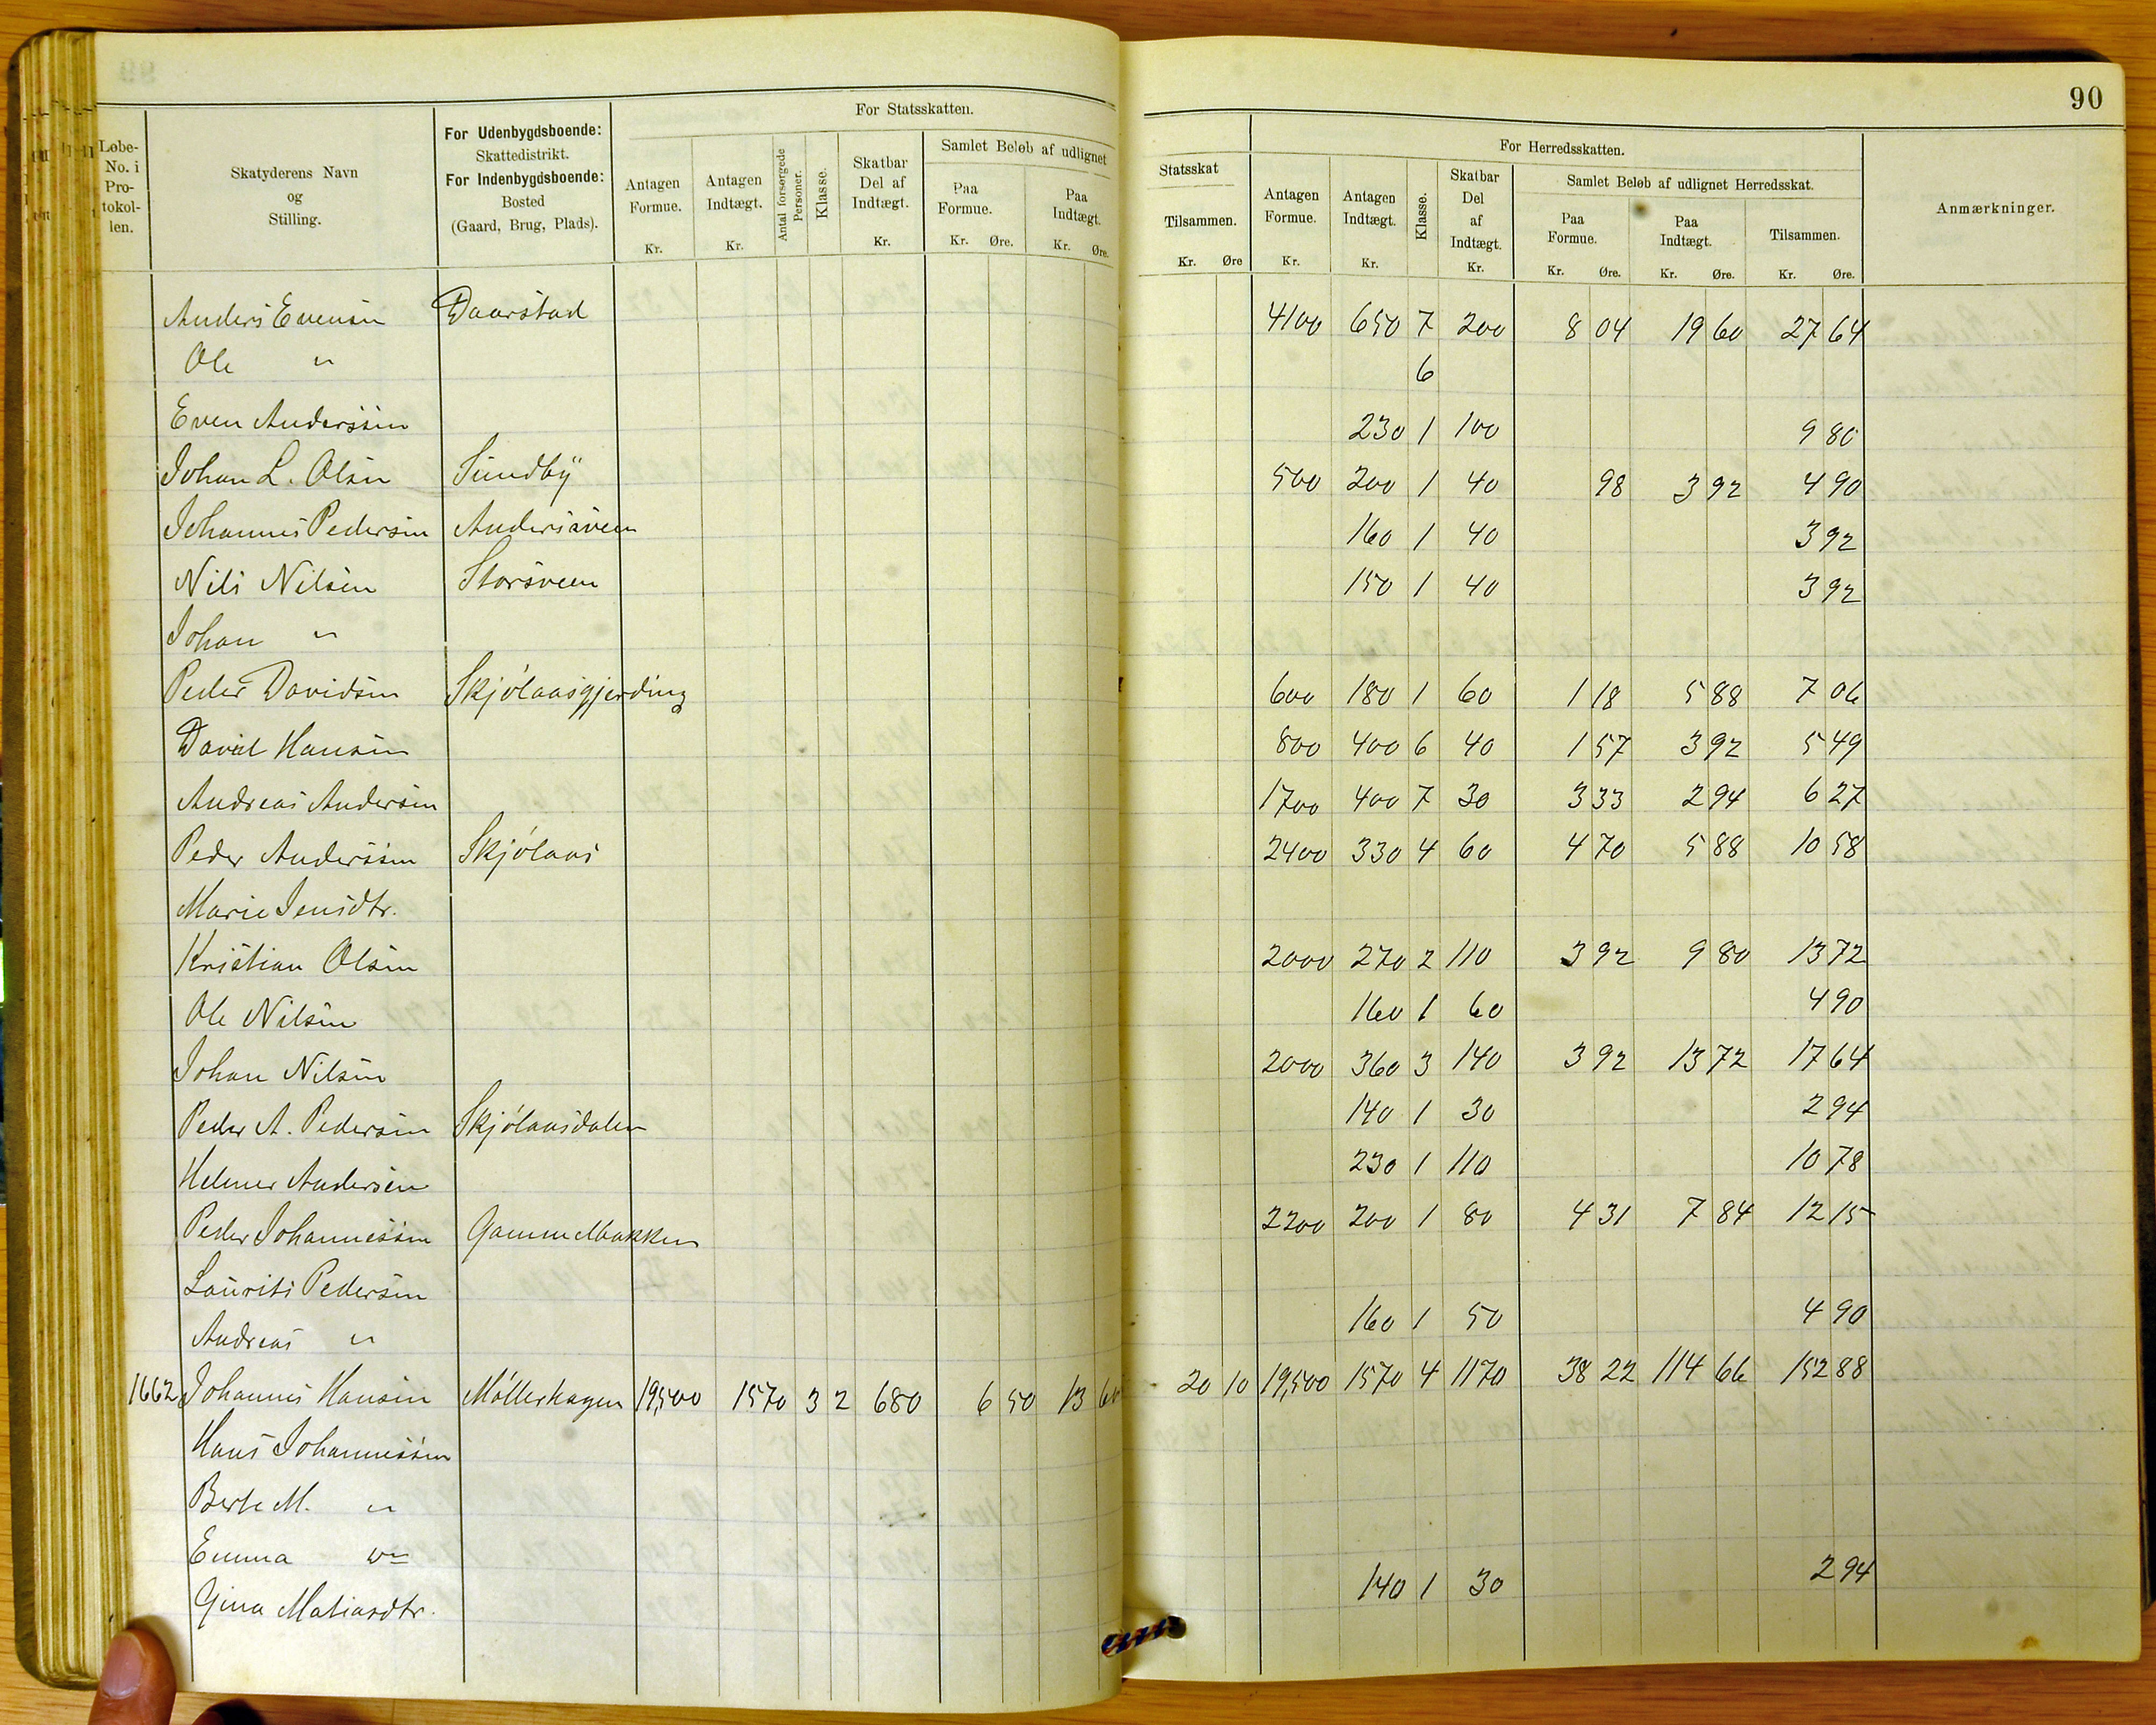 90
Løbe-No. i Protokollen.
Skatyderens Navn og Stilling.
For Udenbygdsboende: Skattedistrikt. For Indenbygdsboende: Bosted (Gaard, Brug, Plads).
For Statsskatten.
Antagen Formue. Kr.
Antagen Indtægt. Kr.
Antal forsørgede Personer.
Klasse.
Skatbar Del af Indtægt. Kr.
Samlet Beløb af udlignet
Paa Formue. Kr. Øre.
Paa Indtægt. Kr. Øre.
Statsskat
Tilsammen. Kr. Øre
For Herredsskatten.
Antagen Formue. Kr.
Antagen Indtægt. Kr.
Klasse.
Skatbar Del af Indtægt. Kr.
Samlet Beløb af udlignet Herredsskat.
Paa Formue. Kr. Øre.
Paa Indtægt. Kr. Øre.
Tilsammen. Kr. Øre.
Anmærkninger.
Anders Evensen Daarstad 4100 650 7 200 8 04 19 60 27 64
Ole " 6
Even Anderssen 230 1 100 9 80
Johan L. Olsen Sundby 500 200 1 40 98 3 92 4 90
Johannes Pedersen Andersåveen 160 1 40 3 92
Nils Nilsen Storsveen 150 1 40 3 92
Johan "
Peder Davidsen Skjólaasgjerding 600 180 1 60 1 18 5 88 7 06
David Hansen 800 400 6 40 1 57 3 92 5 49
Andreas Andersen 1700 400 7 30 3 33 2 94 6 27
Peder Anderssen Skjólaas 2400 330 4 60 4 70 5 88 10 58
Marie Jensdtr.
Kristian Olsen 2000 270 2 110 3 92 9 80 13 72
Ole Nilsen 160 1 60 4 90
Johan Nilsen 2000 360 3 140 3 92 13 72 17 64
Peder A. Pedersen Skjólaasdalen 140 1 30 2 94
Helmer Andersen 230 1 110 10 78
Peder Johannessen Gammelbakken 2200 200 1 80 4 31 7 84 12 15
Laurits Pedersen
Andreas " 160 1 50 4 90
1662 Johannes Hansen Móllerhagen 19,500 1570 3 2 680 6 50 13 60 20 10 19,500 1570 4 1170 38 22 114 66 152 88
Hans Johannessen
Berte M. "
Emma "
Gina Matiasdtr. 140 1 30 2 94